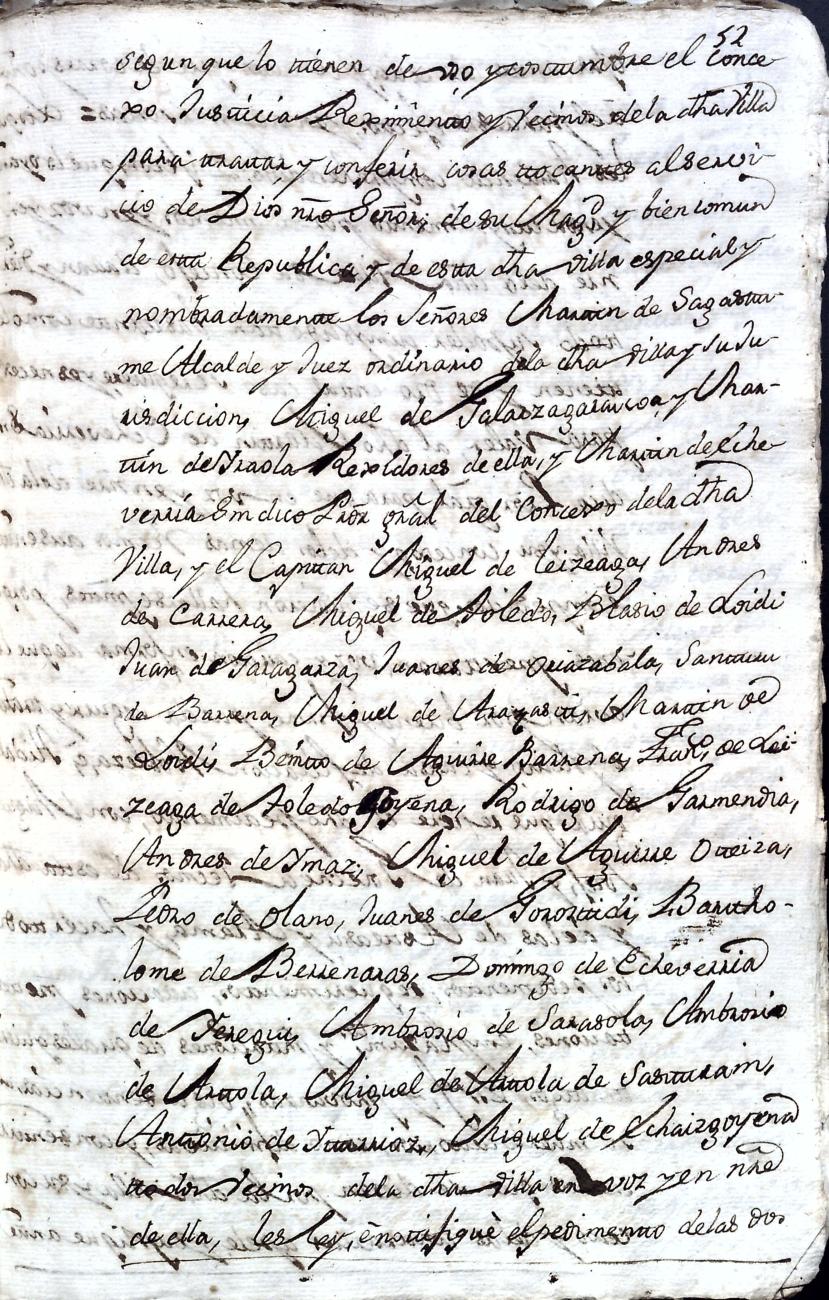 52
segun que lo ttienen de vso y costtumbre el Conce-
xo Justticia Reximientto y Vecinos de la dha Villa
para trattar y conferir cosas ttocanttes al servi-
cio de Dios nro Señor, de su Magd y bien comun
de estta Republica y de estta dha villa especial y
nombradamentte los Señores Marttin de Sagasttu-
me Alcalde y Juez ordinario de la dha villa y su Ju-
risdiccion, Miguel de Galarzagarascoa, y Mar-
ttin de Yraola Rexidores de ella, y Marttin de Eche-
verria Sindico Pror gral del Concexo de la dha
Villa, y el Capittan Miguel de Leizeaga, Andres
de Carrera, Miguel de Toledo, Blasio de Loidi
Juan de Garagarza, Juanes de Oriazabala, Santturu
de Barrena, Miguel de Arayastti, Marttin de
Loidi, Benitto de Aguirre Barrena, Franco de Lei-
zeaga de Toledo Goyena, Rodrigo de Garmendia,
Andres de Ymaz, Miguel de Aguirre Otteiza,
Pedro de Olano, Juanes de Gorosttidi, Bartho-
lome de Berrenaras, Domingo de Echeverria
de Yeregui, Ambrosio de Sarasola, Ambrosio
de Arttola, Miguel de Arttola de Sastturain,
Anttonio de Yttarrioz, Miguel de Echaizgoyena
ttodos Vecinos de la dha villa en voz y en nre
de ella, les ley, e nottifiquè el pedimentto de las dos